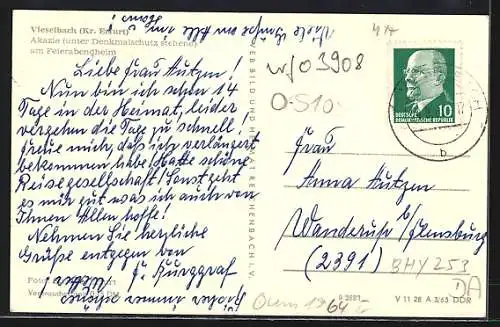 Vieselbach (Kr. Erfurt)
Akazie (unter Denkmalschutz stehend)
am Feierabendheim
Liebe Frau Autzen!
Nun bin ich schon 14
Tage in der Heimat, leider
vergehen die Tage zu schnell,
freue mich, daß ich verlängert
bekommen habe! Hatte schöne
Reisegesellschaft! Sonst geht
es mir gut was ich auch von
Ihnen Allen hoffe!
Nehmen Sie herzliche
Grüße entgegen von
F. Burggraf
Viele Grüße an Alle
w/o 3908
O-S10
10
DEUTSCHE
DEMOKRATISCHE REPUBLIK
b
Frau
Anna Autzen
Wanderup b/Flensburg
(2391)
BHY 253
1964
V 11 28 A 3/63 DDR